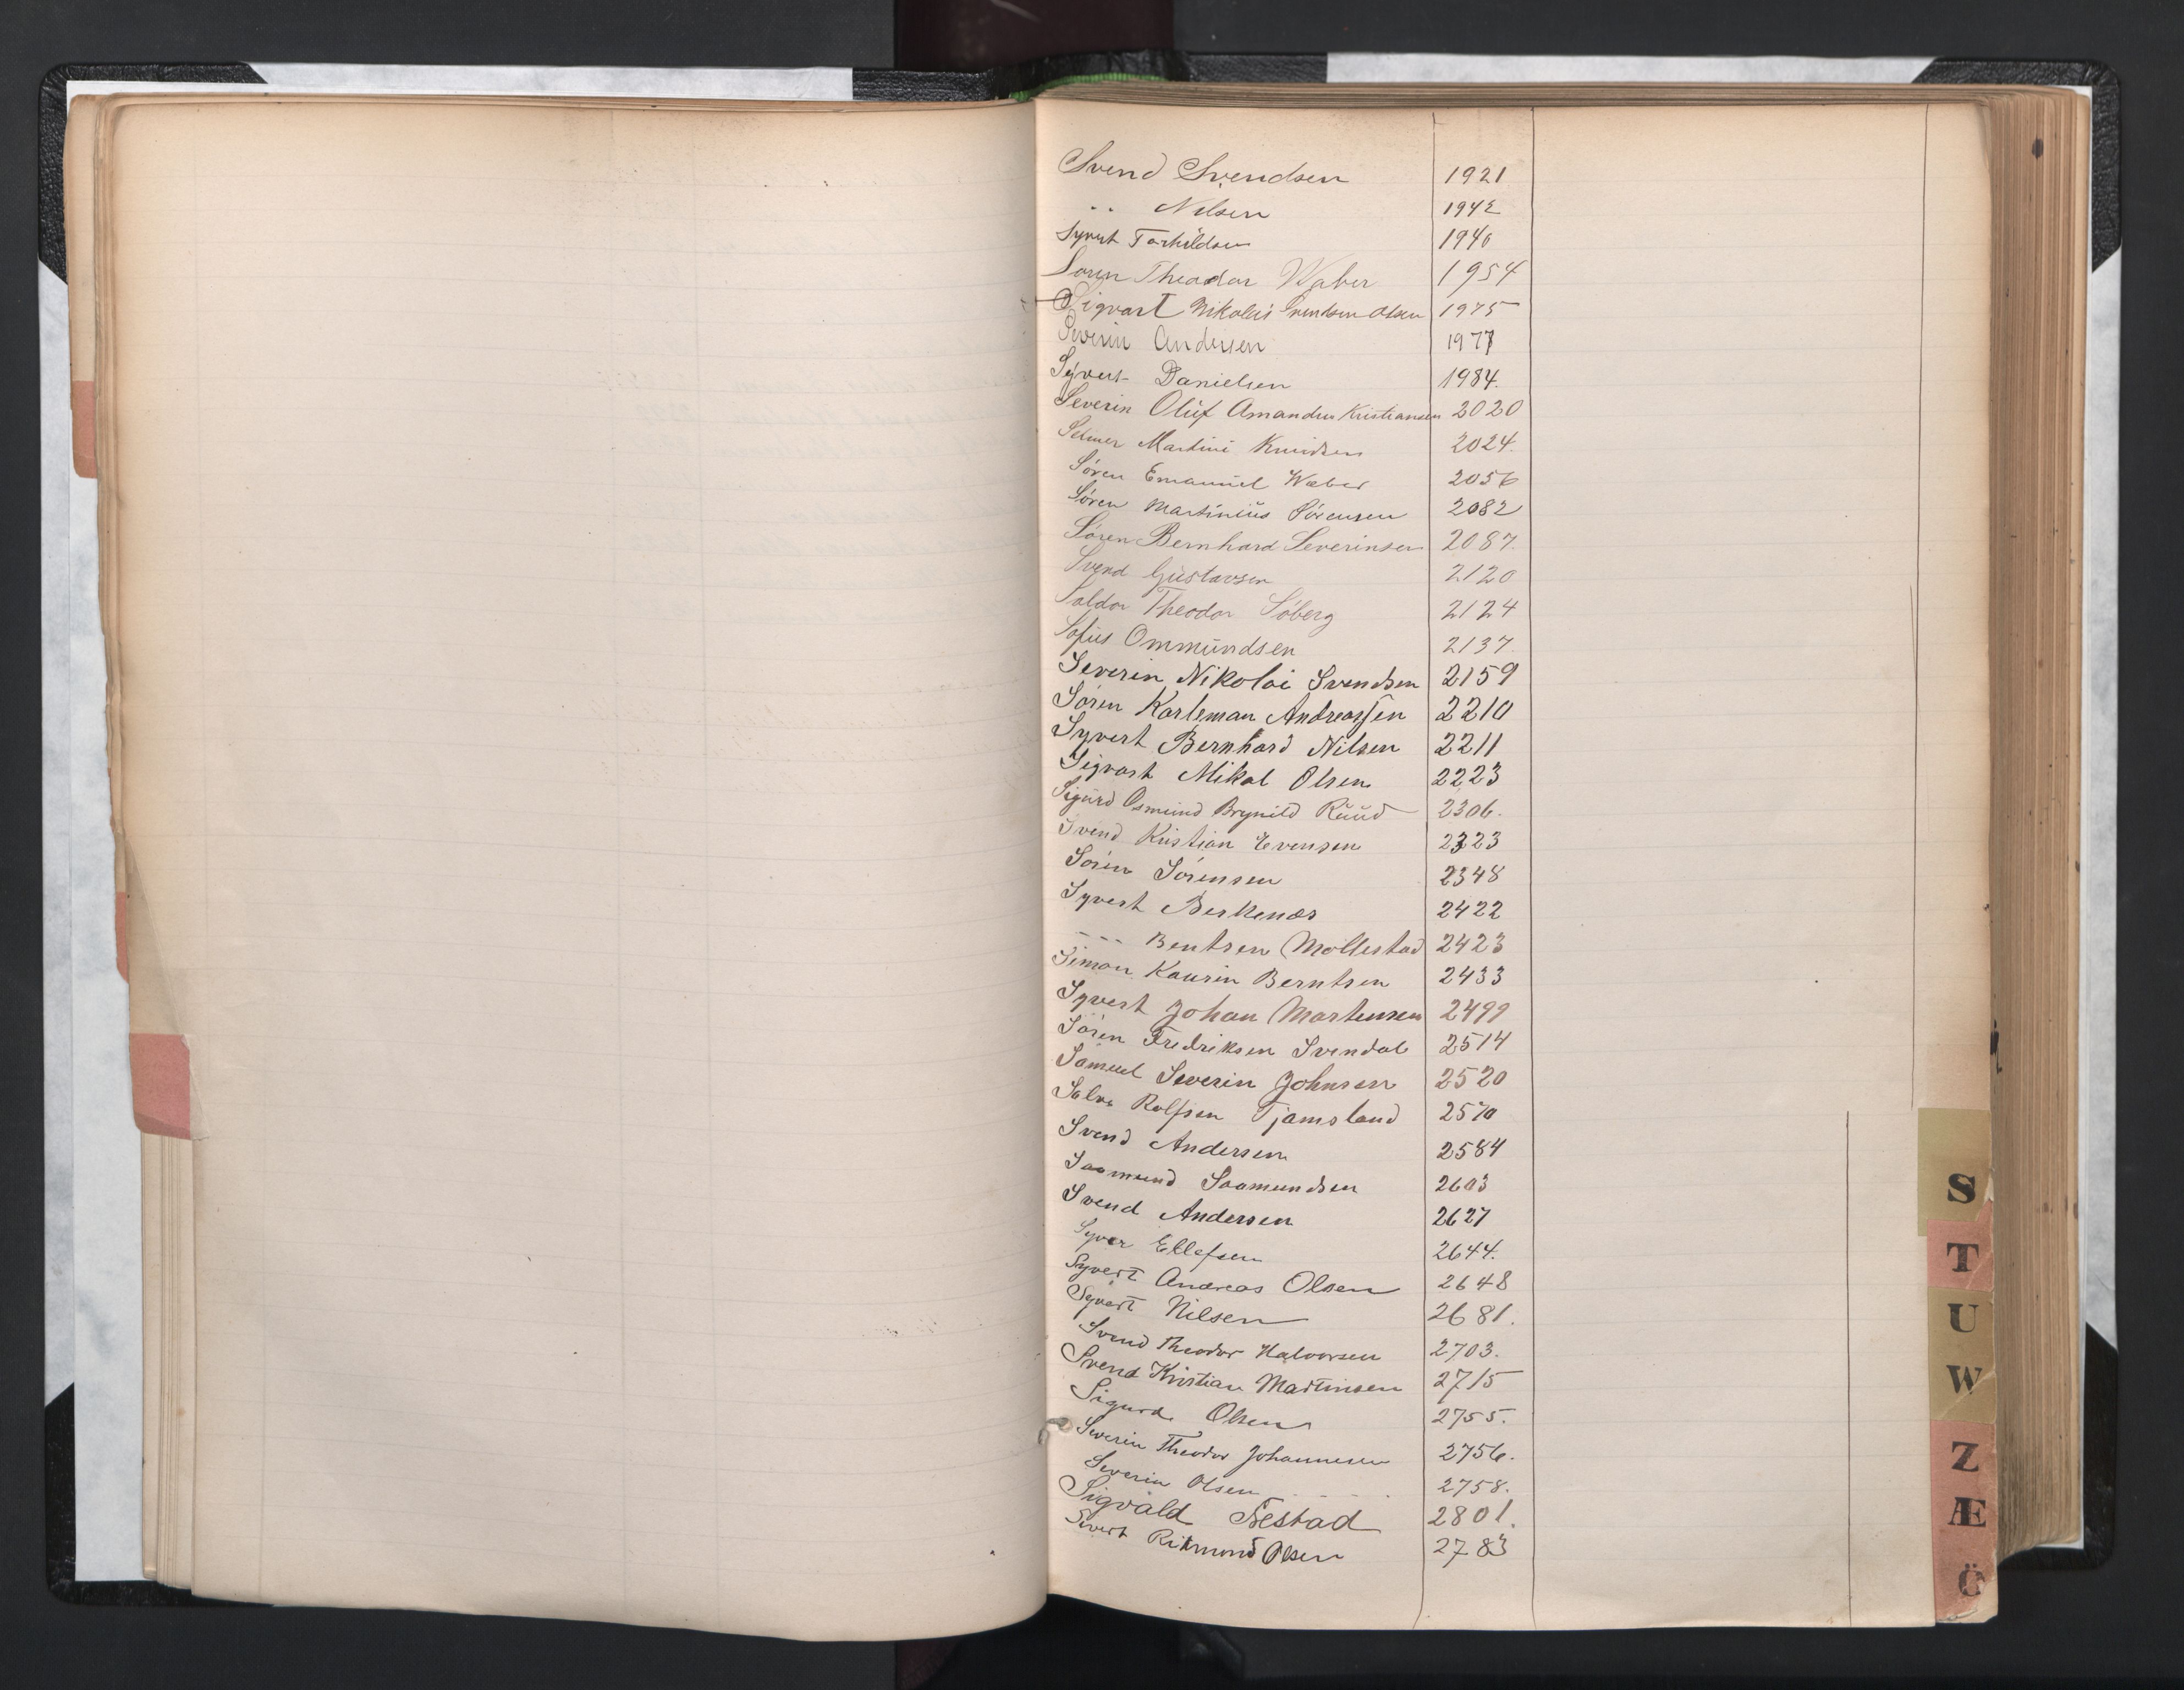 Svend Svendsen 1921
" Nilsen 1942
Syvert Torkildsen 1946
Søren Theodor Waber 1954
Sigvart Nikolai Svendsen Olsen 1975
Severin Andersen 1977
Syvert Danielsen 1984.
Severin Oluf Amandus Kristiansen 2020
Selmer Martini Knudsen 2024.
Søren Emanuel Wæber 2056
Søren Martinius Sørensen 2082
Søren Bernhard Severinsen 2087.
Svend Gustavsen 2120
Saldor Theodor Søberg 2124
Sofus Ommundsen 2137.
Severin Nikolai Svendsen 2159
Søren Karleman Andreassen 2210
Syvert Bernhard Nilsen 2211
Sigvart Mikal Olsen 2223
Sigurd Osmund Brynild Ruud 2306.
Svend Kristian Evensen 2323
Søren Sørensen 2348
Syvert Berkenæs 2422
--- Bentsen Mollestad 2423
Simon Kaurin Berntsen 2433
Syvert Johan Martensen 2499
Søren Fredriksen Svendal 2514
Samuel Severin Johnsen 2520
Salve Rolfsen Tjamsland 2570
Svend Andersen 2584
Saamund Saamundsen 2603
Svend Andersen 2627
Syver Ellefsen 2644.
Syvert Andreas Olsen 2648
Syvert Nilsen 2681.
Svend Theodor Halvorsen 2703.
Svend Kristian Martinsen 2715
Sigurd Olsen 2755.
Severin Theodor Johannesen 2756.
Severin Olsen 2758.
Sigvald Nestad 2801.
Sivert Rikmund Olsen 2783
S
T
U
W
Z
Æ
Ö